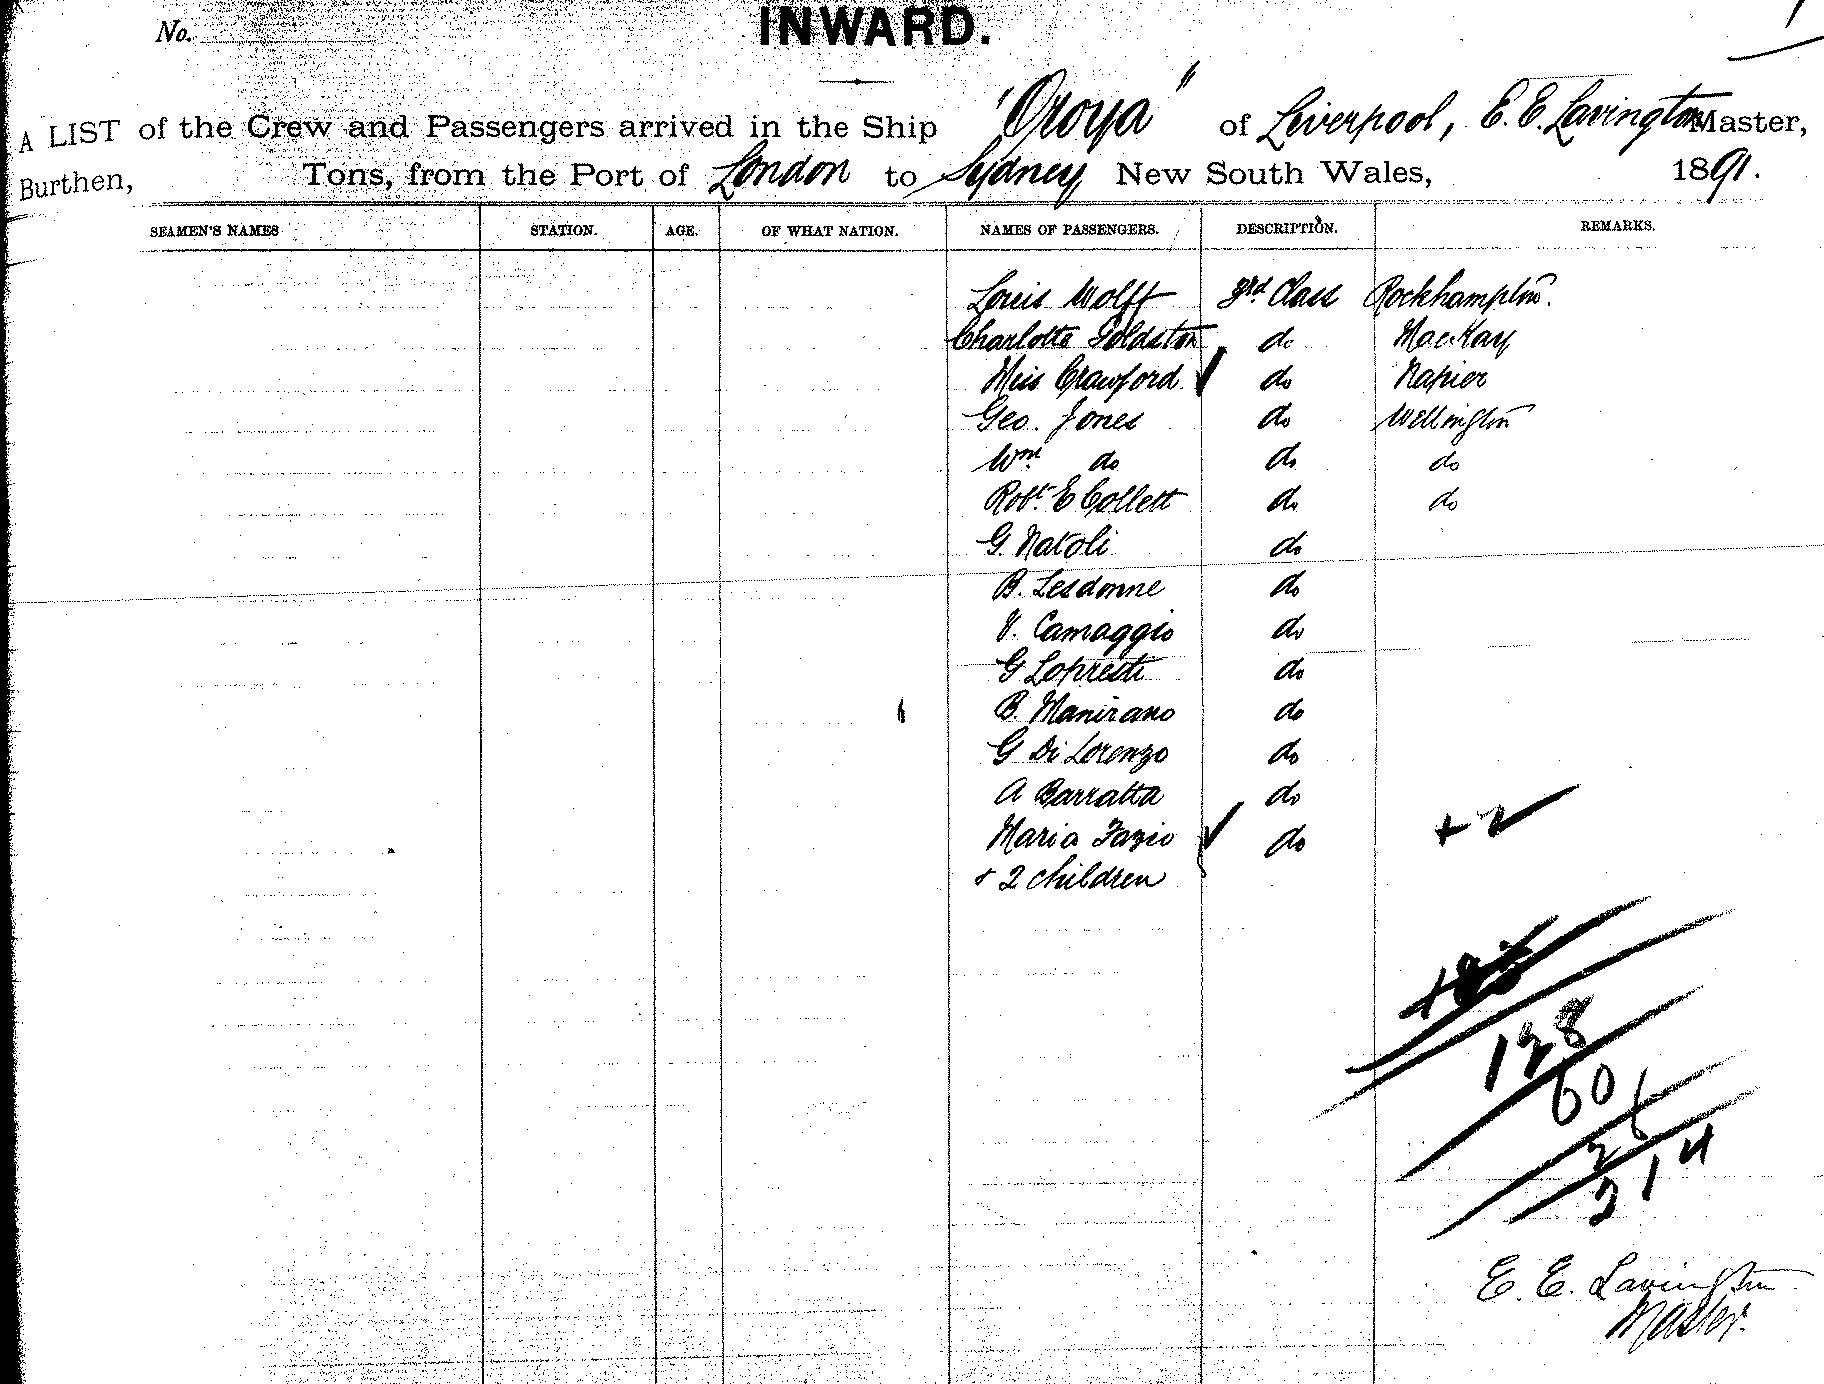 No.
INWARD.
A LIST of the Crew and Passengers arrived in the Ship "Oroya" of Liverpool, E. E. Lavington Master,
Burthen, Tons, from the Port of London to Sydney New South Wales, 1891.
SEAMEN'S NAMES STATION. AGE. OF WHAT NATION. NAMES OF PASSENGERS. DESCRIPTION. REMARKS.
Louis Wolff 3rd Class Rockhampton.
Charlotte Goldston do MacKay
Miss Crawford do Napier
Geo. Jones do Wellington
Wm do do do
Robt. E Collett do do
G. Natoli do
B. Lesdonne do
V. Camaggio do
G Lopresti do
B. Manirano do
G Di Lorenzo do
A Barratta do
Maria Fazio do + 2
+ 2 children
128
60
26
214
E. E. Lavington
Master.